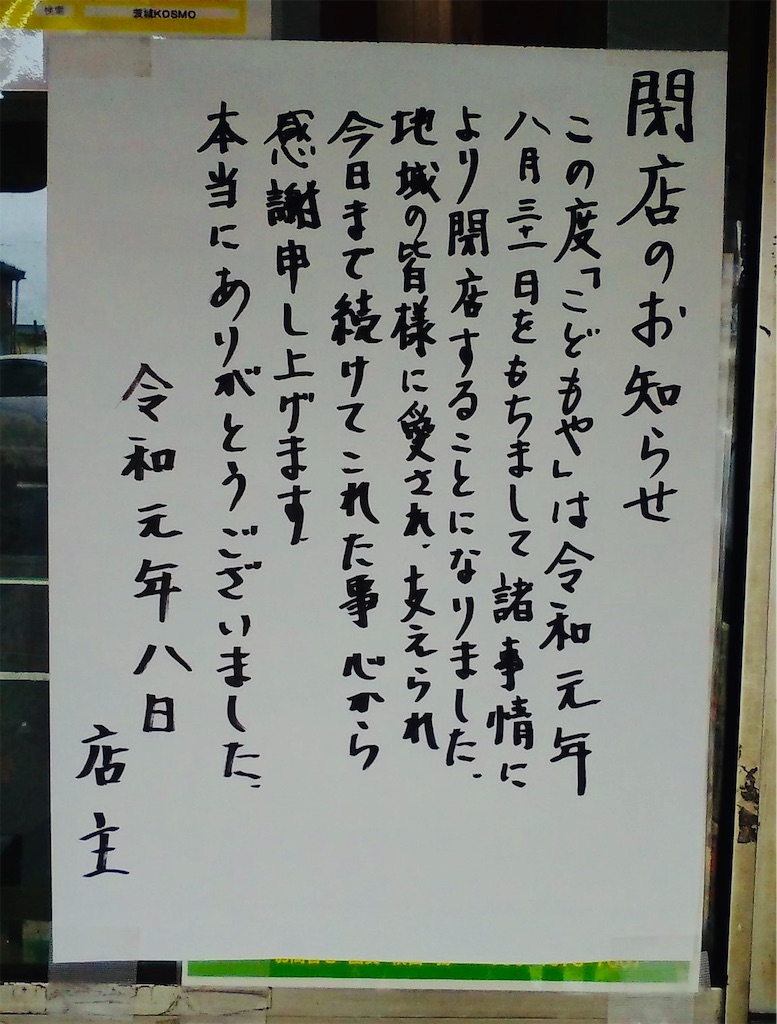 検索
茨城KOSMO
閉店のお知らせ
この度「こどもや」は令和元年
八月三十一日をもちまして諸事情に
より閉店することになりました。
地域の皆様に愛され、支えられ
今日まで続けてこれた事心から
感謝申し上げます
本当にありがとうございました。
令和元年八日
店主